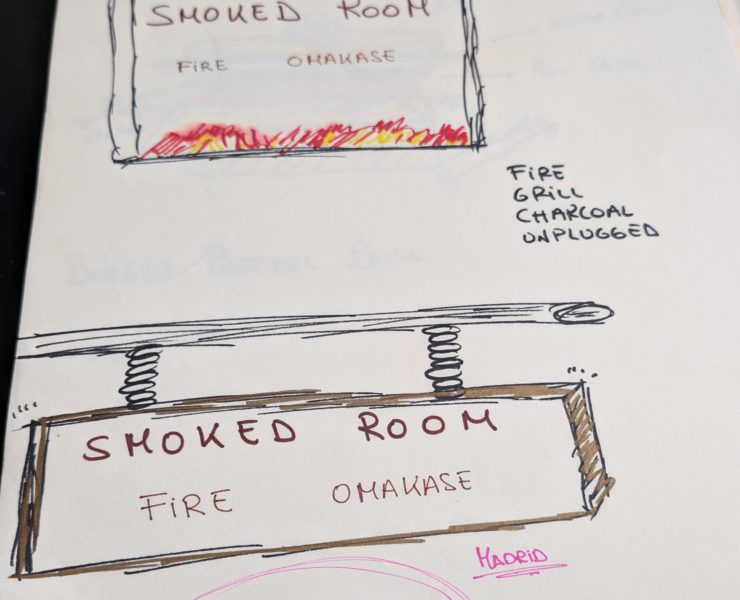 SMOKED ROOM
FiRE OMAKASE
FiRE
GRiLL
CHARCOAL
UNPLUGGED
BURGER PRETZEL
SMOKED ROOM
FiRE OMAKASE
MADRiD